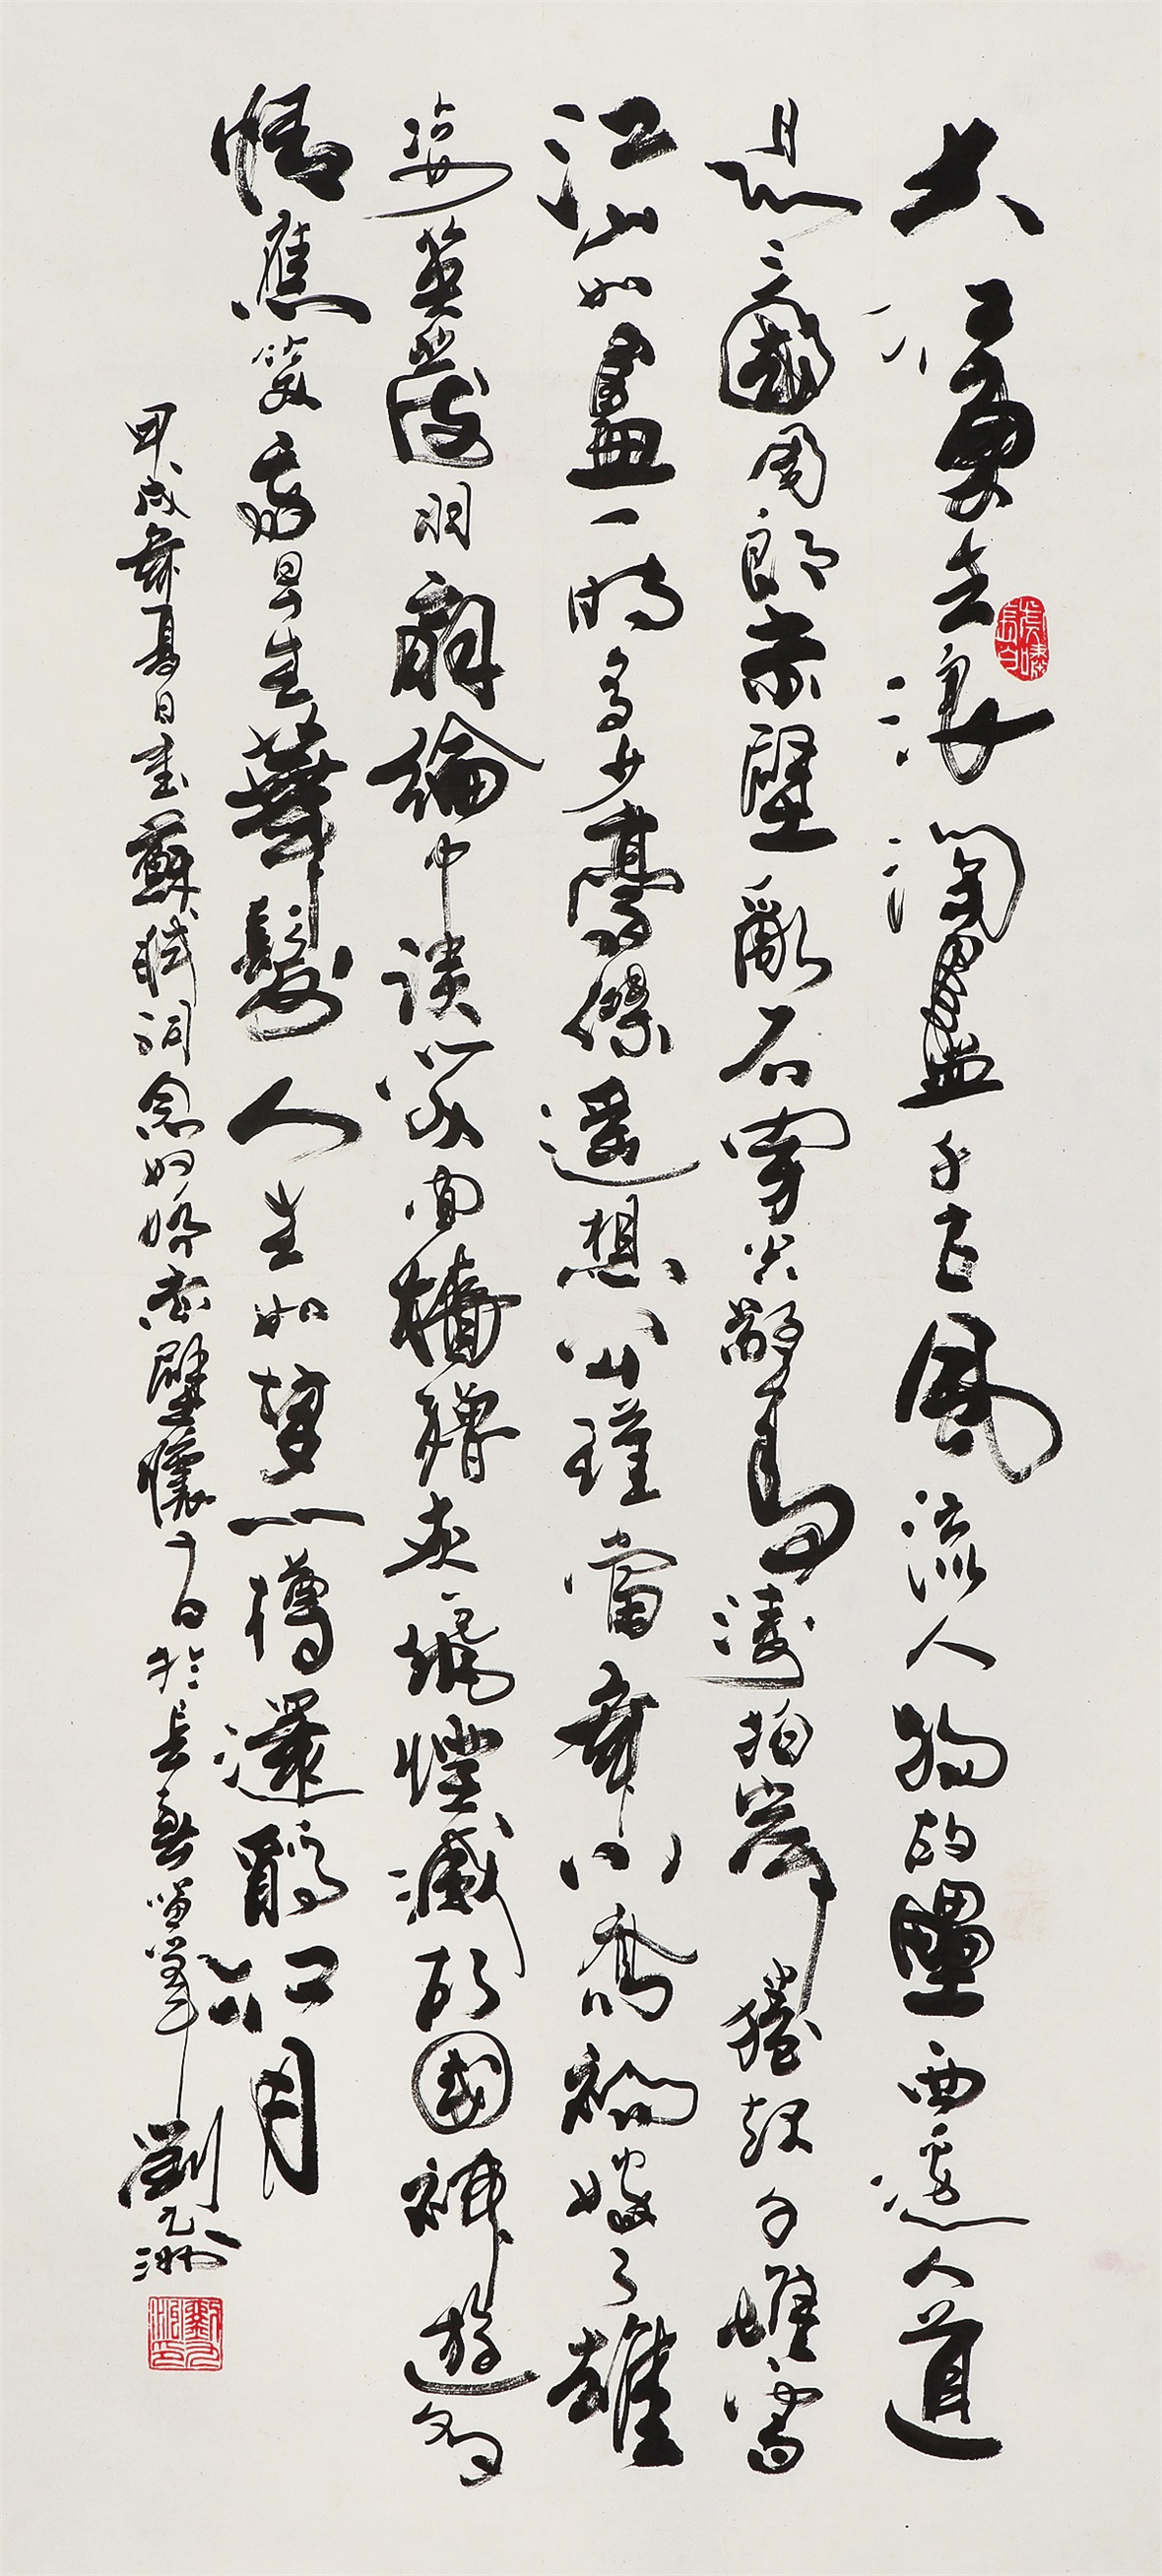 大江東去浪淘盡千古風流人物故壘西邊人道
是三國周郎赤壁亂石穿空驚濤拍岸捲起千堆雪
江山如畫一時多少豪傑遙想公瑾當年小喬初嫁了雄
姿英發羽扇綸巾談笑間檣櫓灰飛煙滅故國神遊多
情應笑我早生華髮人生如夢一樽還酹江月
甲戌年夏日書蘇軾詞念奴嬌赤壁懷古於長春
劉